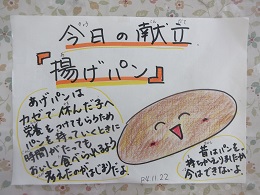 今日の献立
きょう こんだて
『揚げパン』
あげパンは
カゼで休んだ子へ
栄養をつけてもらうため
パンを持っていくときに
時間がたっても
おいしく食べれるよう
考えたのがはじまりだよ
昔はパンを
持ちかえりましたが
今はできないよ。
R4.11.22